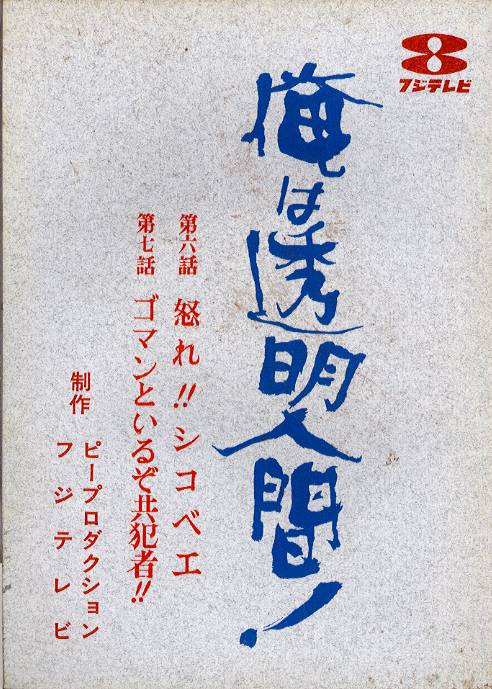 フジテレビ
俺は透明人間！
第六話 怒れ!!シコベエ
第七話 ゴマンといるぞ共犯者!!
制作 ピープロダクション
フジテレビ